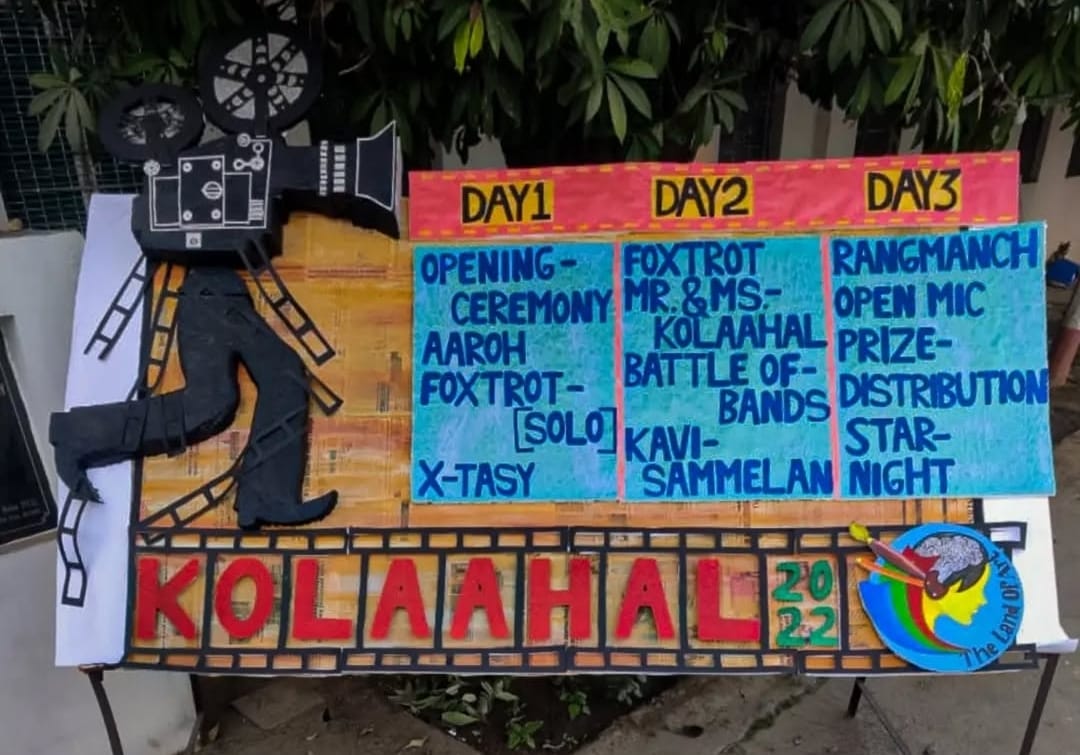 DAY1
OPENING-
CEREMONY
AAROH
FOXTROT-
[SOLO]
X-TASY
DAY2
FOXTROT
MR.&MS.-
KOLAAHAL
BATTLE OF-
BANDS
KAVI-
SAMMELAN
DAY3
RANGMANCH
OPEN MIC
PRIZE-
DISTRIBUTION
STAR-
NIGHT
KOLAAHAL 2022
The Land Of Art